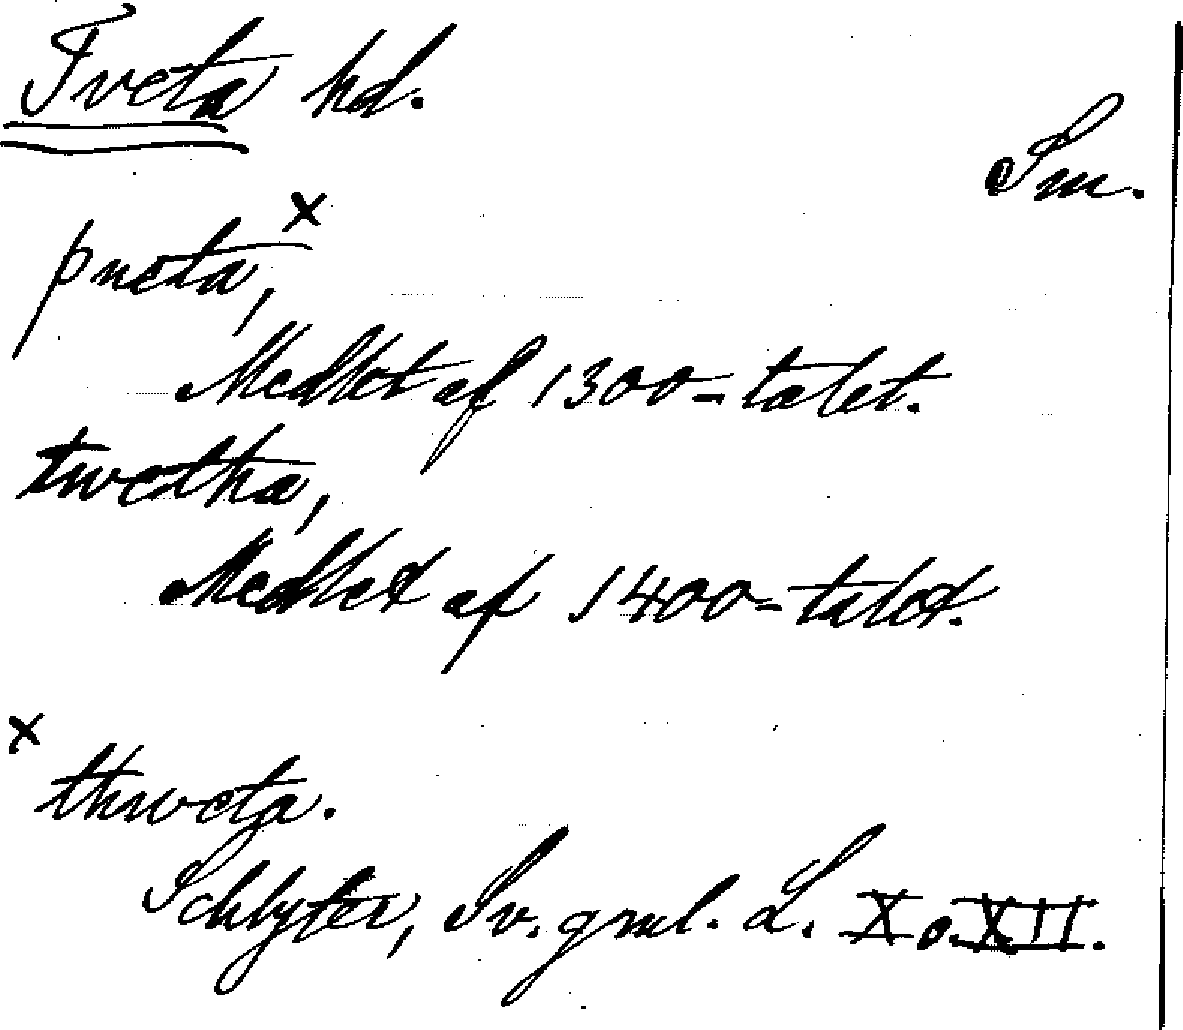 Tveta hd.
Sm.
þueta, x
Medltet af 1300-talet.
twetha,
Medltet af 1400-talet.
x thweta.
Schlyter, Sv. gml. L. X o. XII.